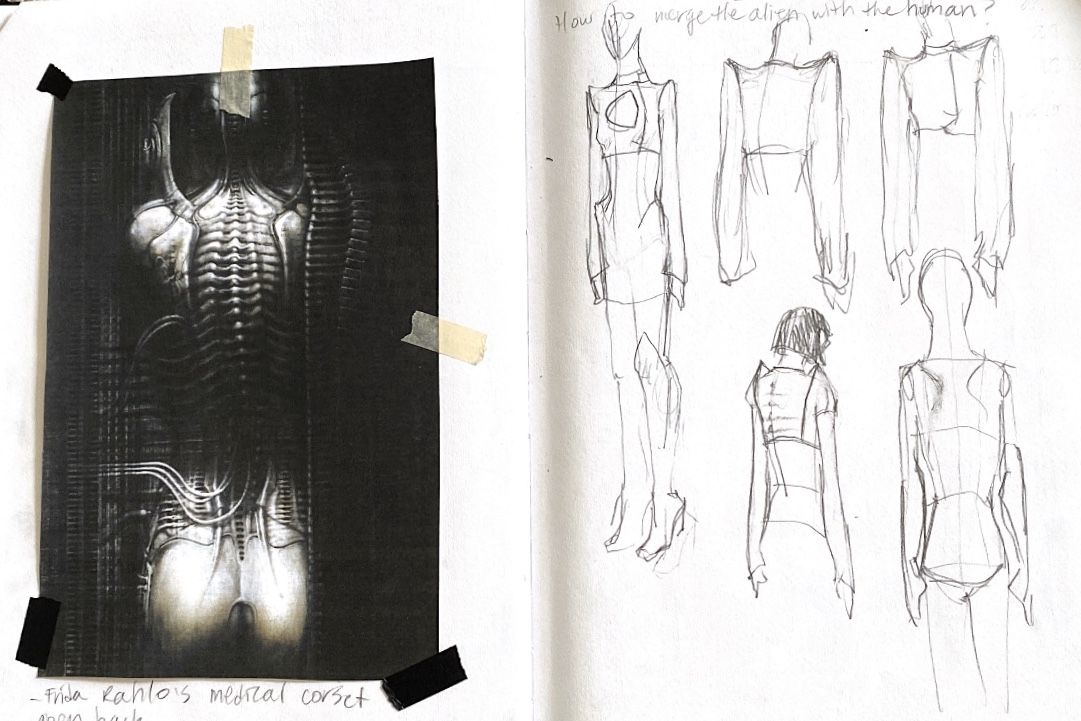 How to merge the alien with the human?
- Frida Kahlo's medical corset
open back